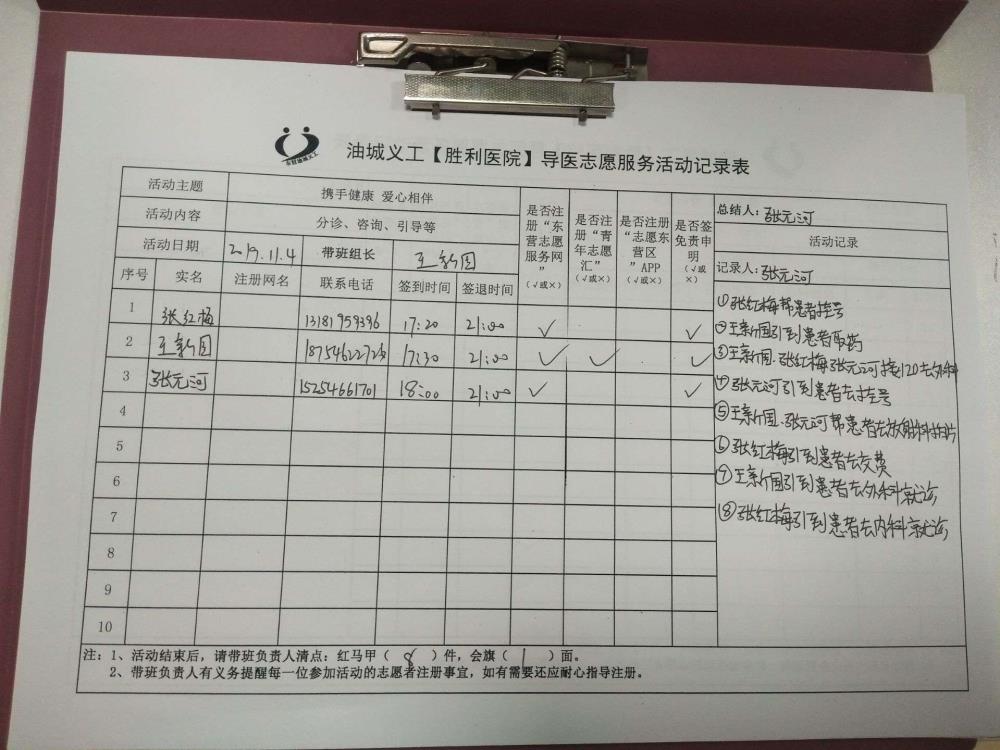 东营油城义工
油城义工【胜利医院】导医志愿服务活动记录表
活动主题 携手健康 爱心相伴
活动内容 分诊、咨询、引导等
活动日期 2019.11.4 带班组长 王新国
序号 实名 注册网名 联系电话 签到时间 签退时间
是否注册“东营志愿服务网”（√或×）
是否注册“青年志愿汇”（√或×）
是否注册“志愿东营区”APP（√或×）
是否签免责申明（√或×）
总结人：张元河
活动记录
记录人：张元河
1 张红梅 13181959396 17:20 21:00 √ √
2 王新国 18754622723 17:30 21:00 √ √ √
3 张元河 15254661701 18:00 21:00 √ √
4
5
6
7
8
9
10
①张红梅帮患者挂号
②王新国引到患者取药
③王新国.张红梅张元河接120去外科
④张元河引到患者去挂号
⑤王新国.张元河帮患者去放射科拍片
⑥张红梅引到患者去交费
⑦王新国引到患者去外科就诊
⑧张红梅引到患者去内科就诊
注：1、活动结束后，请带班负责人清点：红马甲（ 8 ）件，会旗（ 1 ）面。
2、带班负责人有义务提醒每一位参加活动的志愿者注册事宜，如有需要还应耐心指导注册。